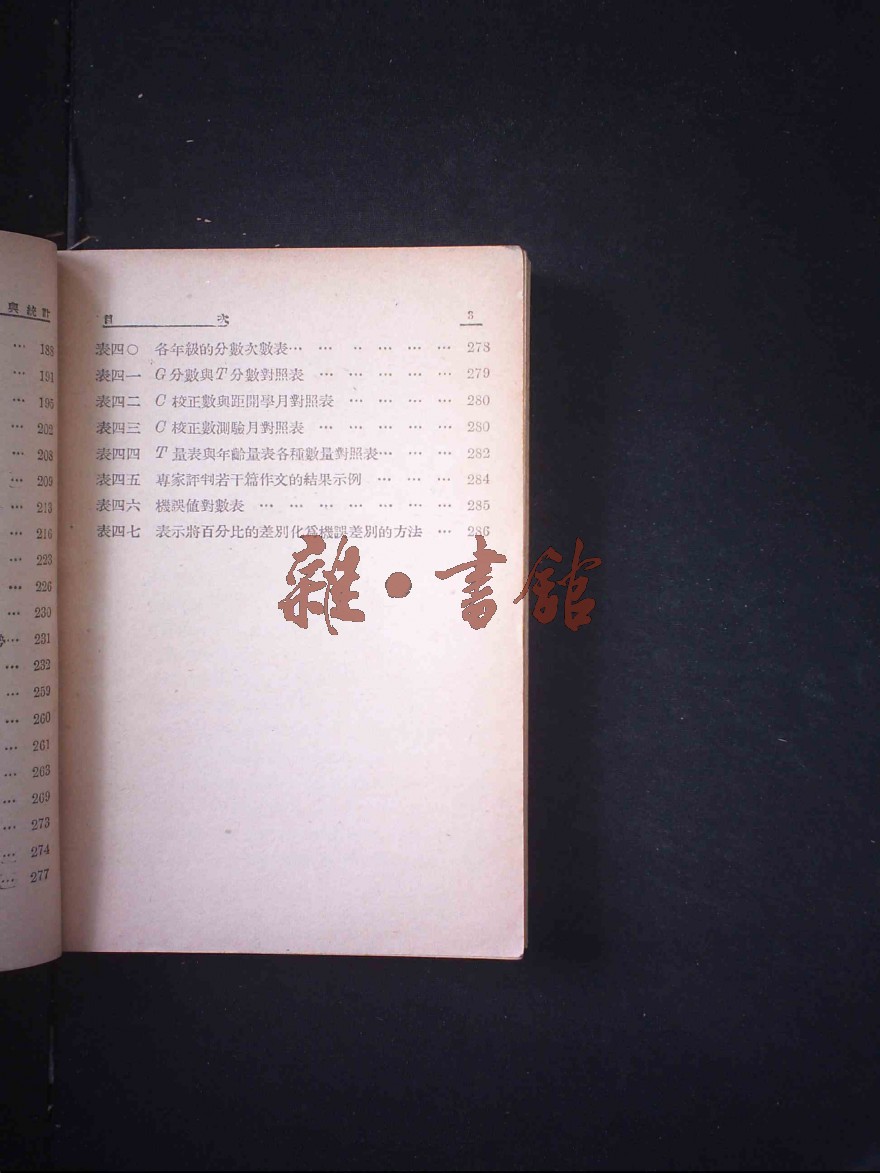 與統計
… 188
… 191
… 195
… 202
… 208
… 209
… 213
… 216
… 223
… 226
… 230
… 231
… 232
… 259
… 260
… 261
… 263
… 269
… 273
… 274
… 277
目 次 3
表四〇 各年級的分數次數表… … ‥ … … … 278
表四一 G分數與T分數對照表 … … … … … 279
表四二 C校正數與距開學月對照表 … … … … 280
表四三 C校正數測驗月對照表 … … … … … 280
表四四 T量表與年齡量表各種數量對照表… … … 282
表四五 專家評判若干篇作文的結果示例 … … … 284
表四六 機誤值對數表 … … … … … … … 285
表四七 表示將百分比的差別化爲機誤差別的方法 … 286
雜·書館